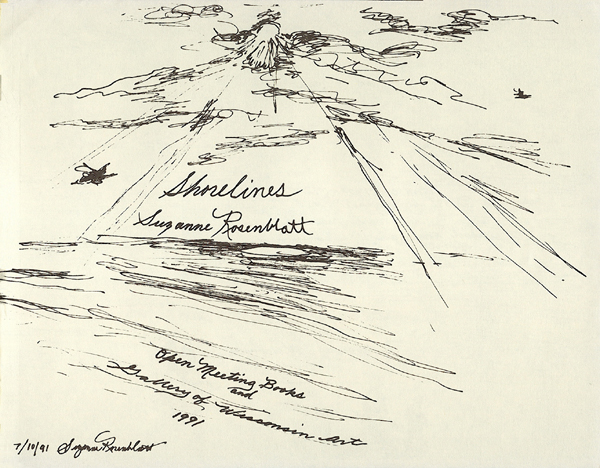 Shorelines
Suzanne Rosenblatt
Open Meeting Books
and
Gallery of Wisconsin Art
1991
7/10/91 Suzanne Rosenblatt